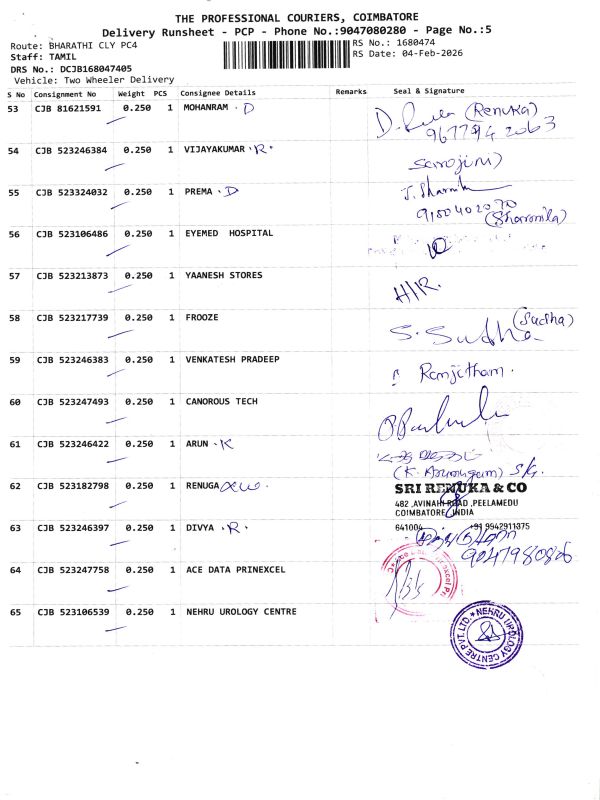 THE PROFESSIONAL COURIERS, COIMBATORE
Delivery Runsheet - PCP - Phone No.:9047080280 - Page No.:5
Route: BHARATHI CLY PC4
RS No.: 1680474
Staff: TAMIL
RS Date: 04-Feb-2026
DRS No.: DCJB168047405
Vehicle: Two Wheeler Delivery
S No Consignment No Weight PCS Consignee Details Remarks Seal & Signature
53 CJB 81621591 0.250 1 MOHANRAM . D (Renuka)
9677942063
54 CJB 523246384 0.250 1 VIJAYAKUMAR . R. Sarojini)
55 CJB 523324032 0.250 1 PREMA . D
(Sharmila)
56 CJB 523106486 0.250 1 EYEMED HOSPITAL
57 CJB 523213873 0.250 1 YAANESH STORES
58 CJB 523217739 0.250 1 FROOZE S. Sudha (Sudha)
59 CJB 523246383 0.250 1 VENKATESH PRADEEP Ranjitham.
60 CJB 523247493 0.250 1 CANOROUS TECH
61 CJB 523246422 0.250 1 ARUN . K
(K. Arumugam) S/G.
62 CJB 523182798 0.250 1 RENUGA SRI RENUKA & CO
482 ,AVINAHI ROAD ,PEELAMEDU
COIMBATORE, INDIA
641004 +91 9942911375
63 CJB 523246397 0.250 1 DIVYA . R.
64 CJB 523247758 0.250 1 ACE DATA PRINEXCEL
65 CJB 523106539 0.250 1 NEHRU UROLOGY CENTRE
NEHRU UROLOGY CENTRE PVT. LTD.